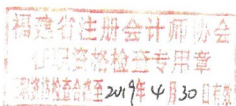 福建省注册会计师协会
任职资格检查专用章
任职资格检查合格至2019年4月30日有效